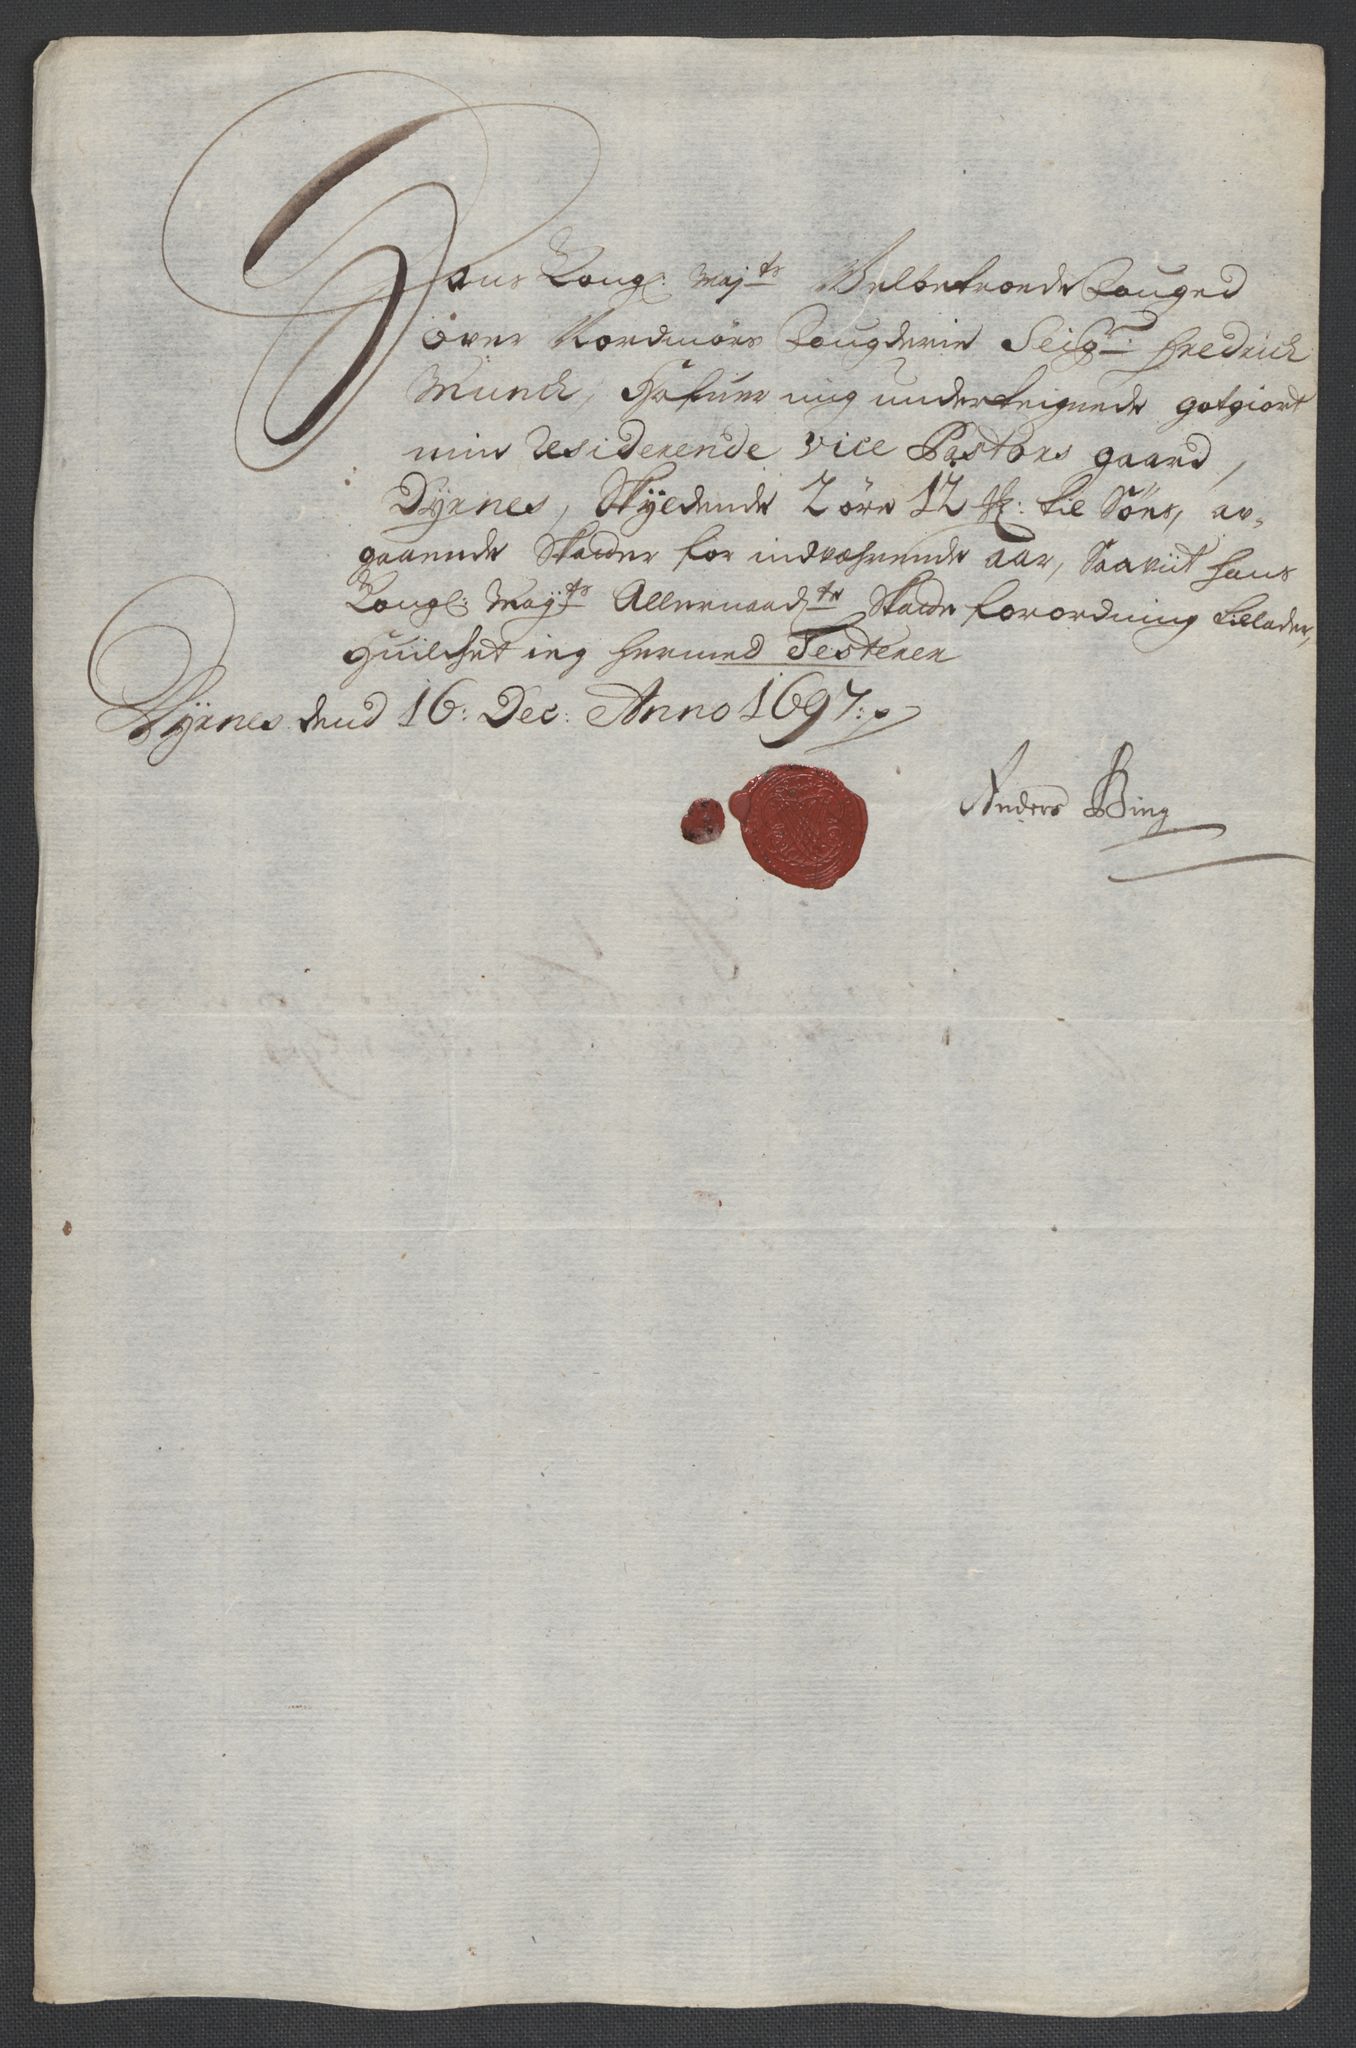 Hans Kongl: Majts Velbetroede Fouged
över Nordmörs Fougderie Seigr: Fredrich
Munch, Hafuer mig underteignede gotgiort
min Residerende Vice Pastors gaard,
Dyrnes, Skyldende 2 öre 12 mk: til Söns, av-
gaaende Skatter for indvæhrende aar, Saaviit Hans
Kongl: Mayts Allernaadste Skatte forordning tillader,
Huilchet ieg hermed Testerer
Dyrnes dend 16: Dec: Anno 1697:
Anders Bing